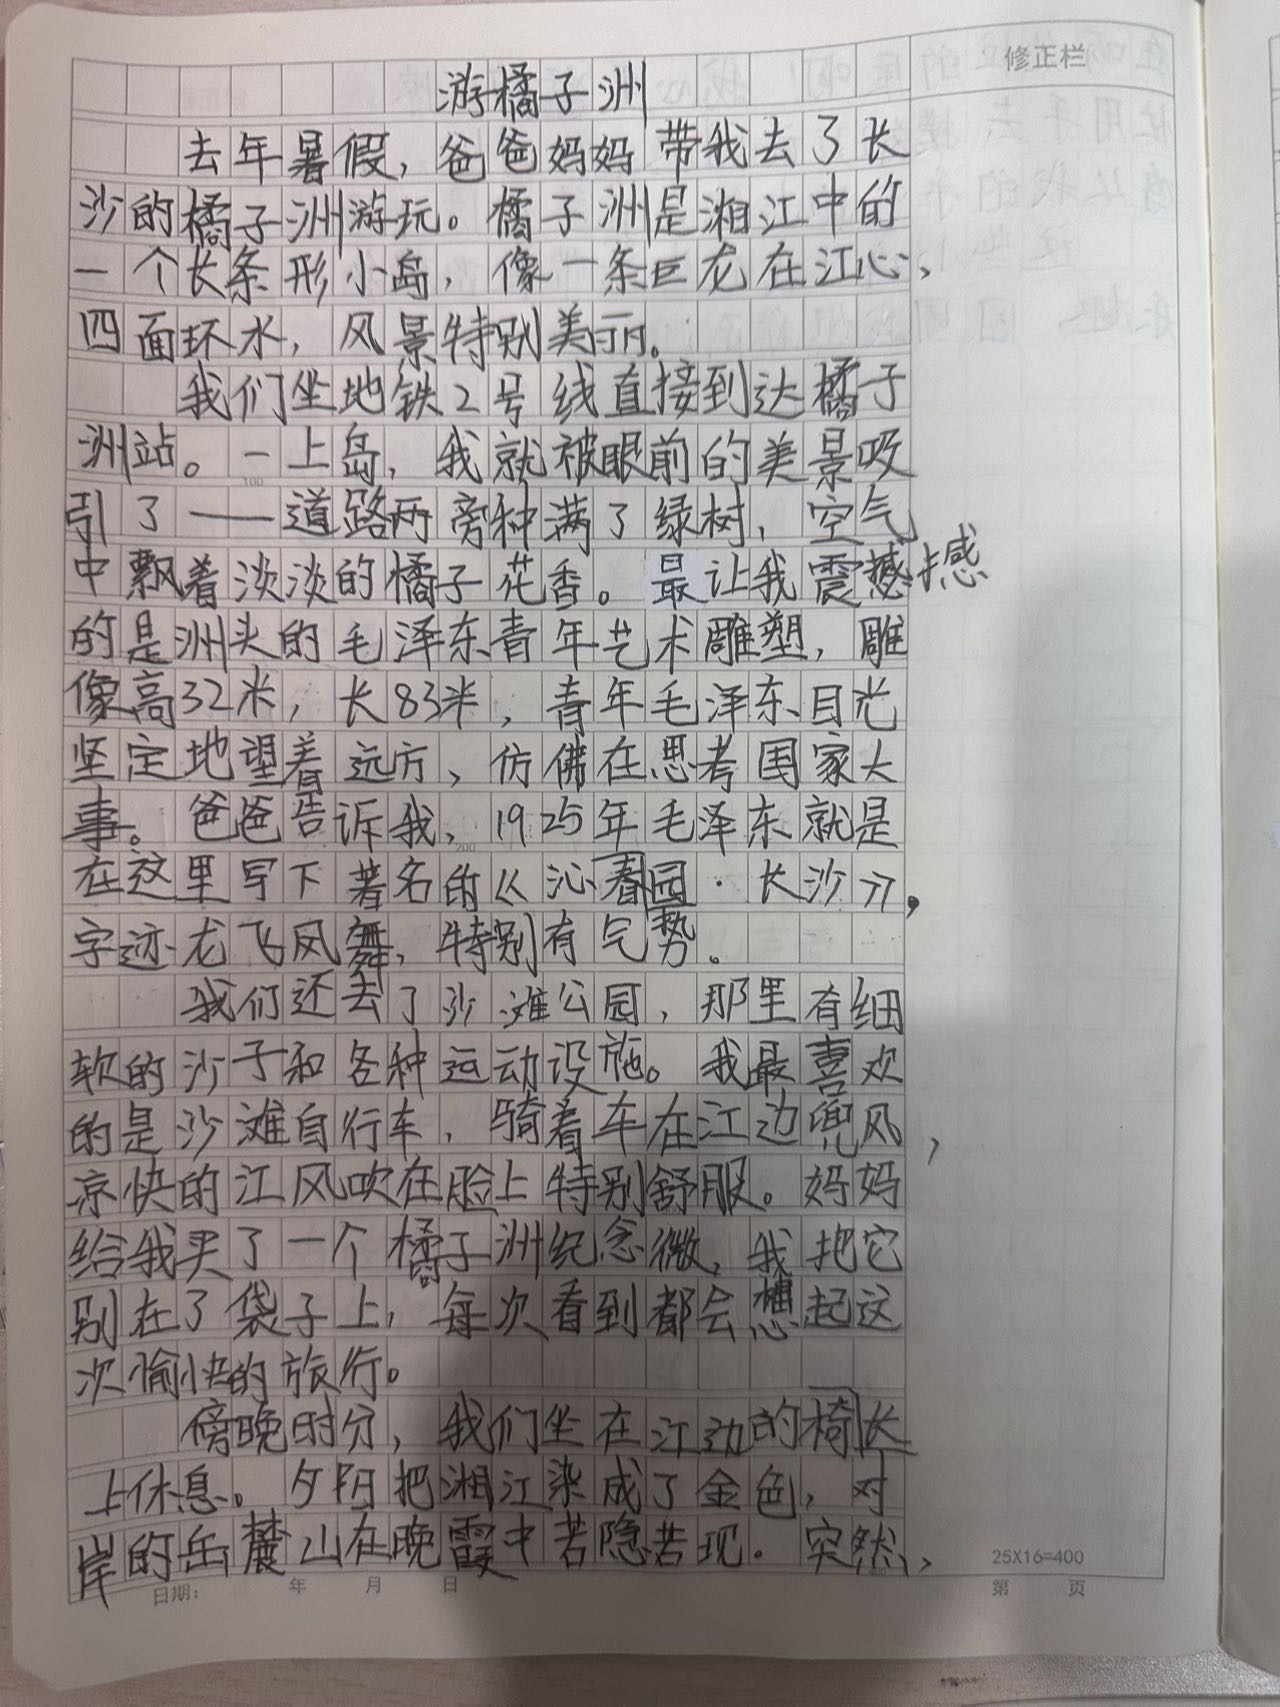 修正栏
游橘子洲
去年暑假，爸爸妈妈带我去了长
沙的橘子洲游玩。橘子洲是湘江中的
一个长条形小岛，像一条巨龙在江心，
四面环水，风景特别美丽。
我们坐地铁2号线直接到达橘子
洲站。一上岛，我就被眼前的美景吸
引了——道路两旁种满了绿树，空气
中飘着淡淡的橘子花香。最让我震撼撼
的是洲头的毛泽东青年艺术雕塑，雕
像高32米，长83米，青年毛泽东目光
坚定地望着远方，仿佛在思考国家大
事。爸爸告诉我，1925年毛泽东就是
在这里写下著名的《沁春园·长沙》，
字迹龙飞凤舞，特别有气势。
我们还去了沙滩公园，那里有细
软的沙子和各种运动设施。我最喜欢
的是沙滩自行车，骑着车在江边兜风，
凉快的江风吹在脸上特别舒服。妈妈
给我买了一个橘子洲纪念微，我把它
别在了袋子上，每次看到都会想起这
次愉快的旅行。
傍晚时分，我们坐在江边的椅长
上休息。夕阳把湘江染成了金色，对
岸的岳麓山在晚霞中若隐若现。突然，
25X16=400
日期： 年 月 日 第 页